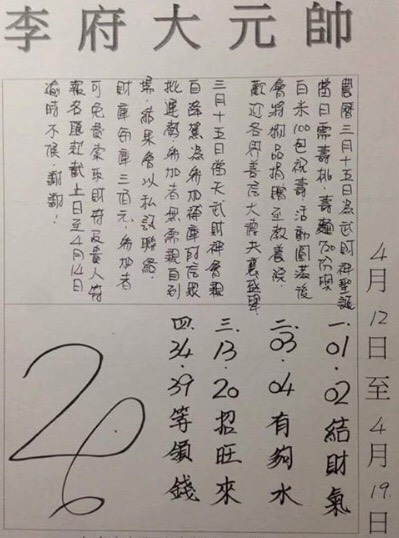 李府大元帥
4月12日至4月19.日
農曆三月十五日為武財神聖誕
當日需壽桃.壽麵720份與
白米100包祝壽活動圓滿後
會將物品捐贈至教養院
歡迎各界善信大德共襄盛舉
三月十五日當天武財神會親
自降駕為參加補庫的信眾
批運勢參加者無需親自到
場.結果會以私訊聯絡.
財庫每庫三佰元.參加者
可免費索取財符及貴人符
報名匯款截止日至4月14日
逾時不候.謝謝!
一.01.02結財氣
二.03.04有夠水
三.13.20招旺來
四.34.39等領錢
26